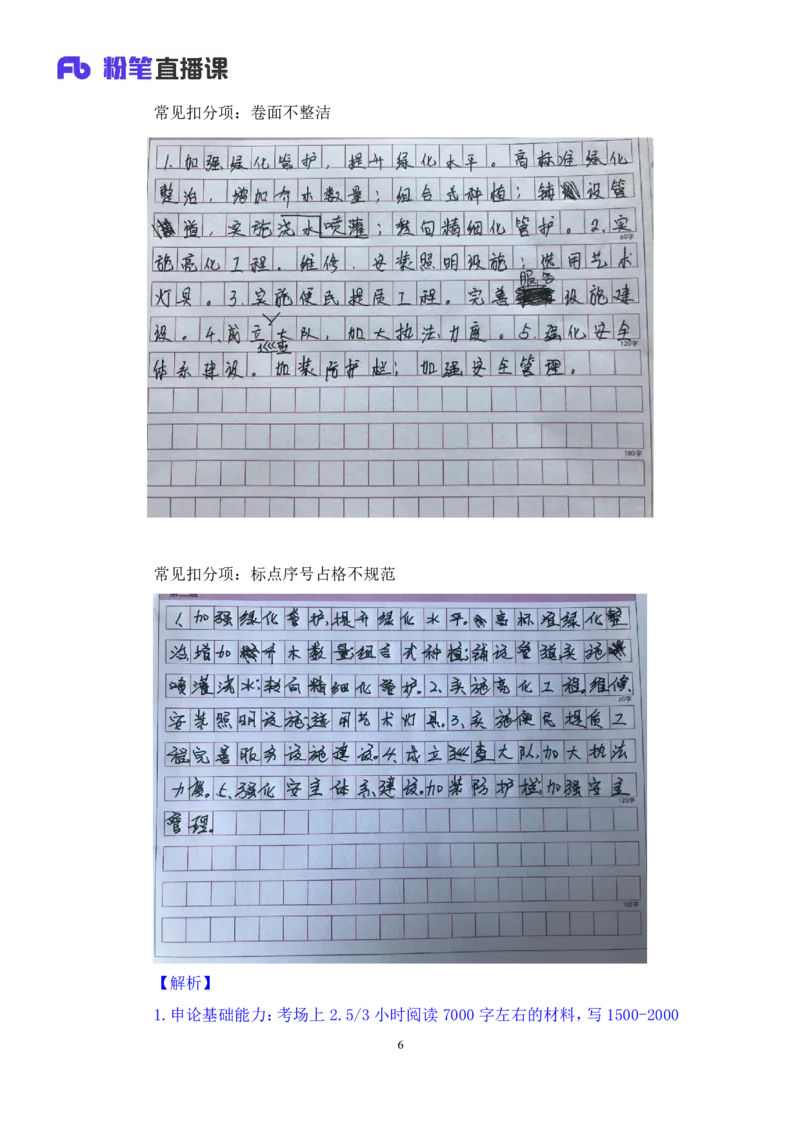 粉笔直播课
常见扣分项：卷面不整洁
1.加强绿化管护，提升绿化水平。高标准绿化
整治，增加乔木数量；组合式种植；铺设管
道，实施浇水喷灌；转向精细化管护。2.实
60字
施亮化工程。维修、安装照明设施；选用艺术
灯具。3.实施便民提质工程。完善服务设施建
设。4.前立巡查大队，加大执法力度。5.强化安全
120字
体系建设。加装防护栏；加强安全管理。
180字
常见扣分项：标点序号占格不规范
1.加强绿化管护,提升绿化水平。高标准绿化整
治,增加乔木数量;组合式种植;铺设管道,实施
喷灌浇水;转向精细化管护。2.实施亮化工程。维修、
60字
安装照明设施;选用艺术灯具。3.实施便民提质工
程,完善服务设施建设。4.成立巡查大队,加大执法
力度。5.强化安全体系建设。加装防护栏;加强安全
120字
管理。
180字
【解析】
1.申论基础能力：考场上 2.5/3 小时阅读 7000 字左右的材料，写 1500-2000
6